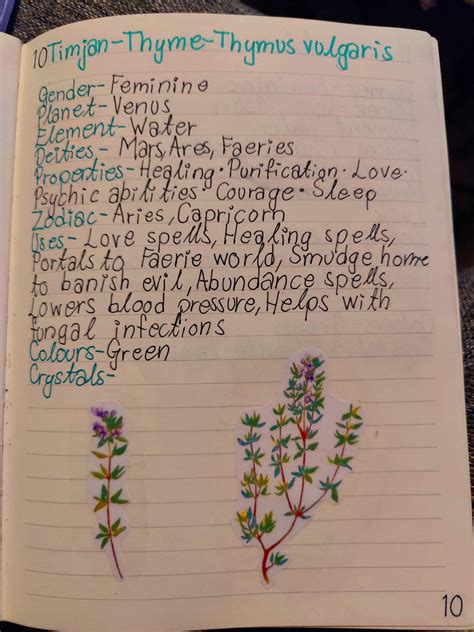 10 Timjan-Thyme-Thymus vulgaris
Gender-Feminine
Planet-Venus
Element-Water
Deities- Mars, Ares, Faeries
Properties-Healing·Purification·Love·
Psychic abilities·Courage·Sleep
Zodiac-Aries, Capricorn
Uses- Love spells, Healing spells,
Portals to Faerie world, Smudge home
to banish evil, Abundance spells,
Lowers blood pressure, Helps with
fungal infections
Colours-Green
Crystals-
10